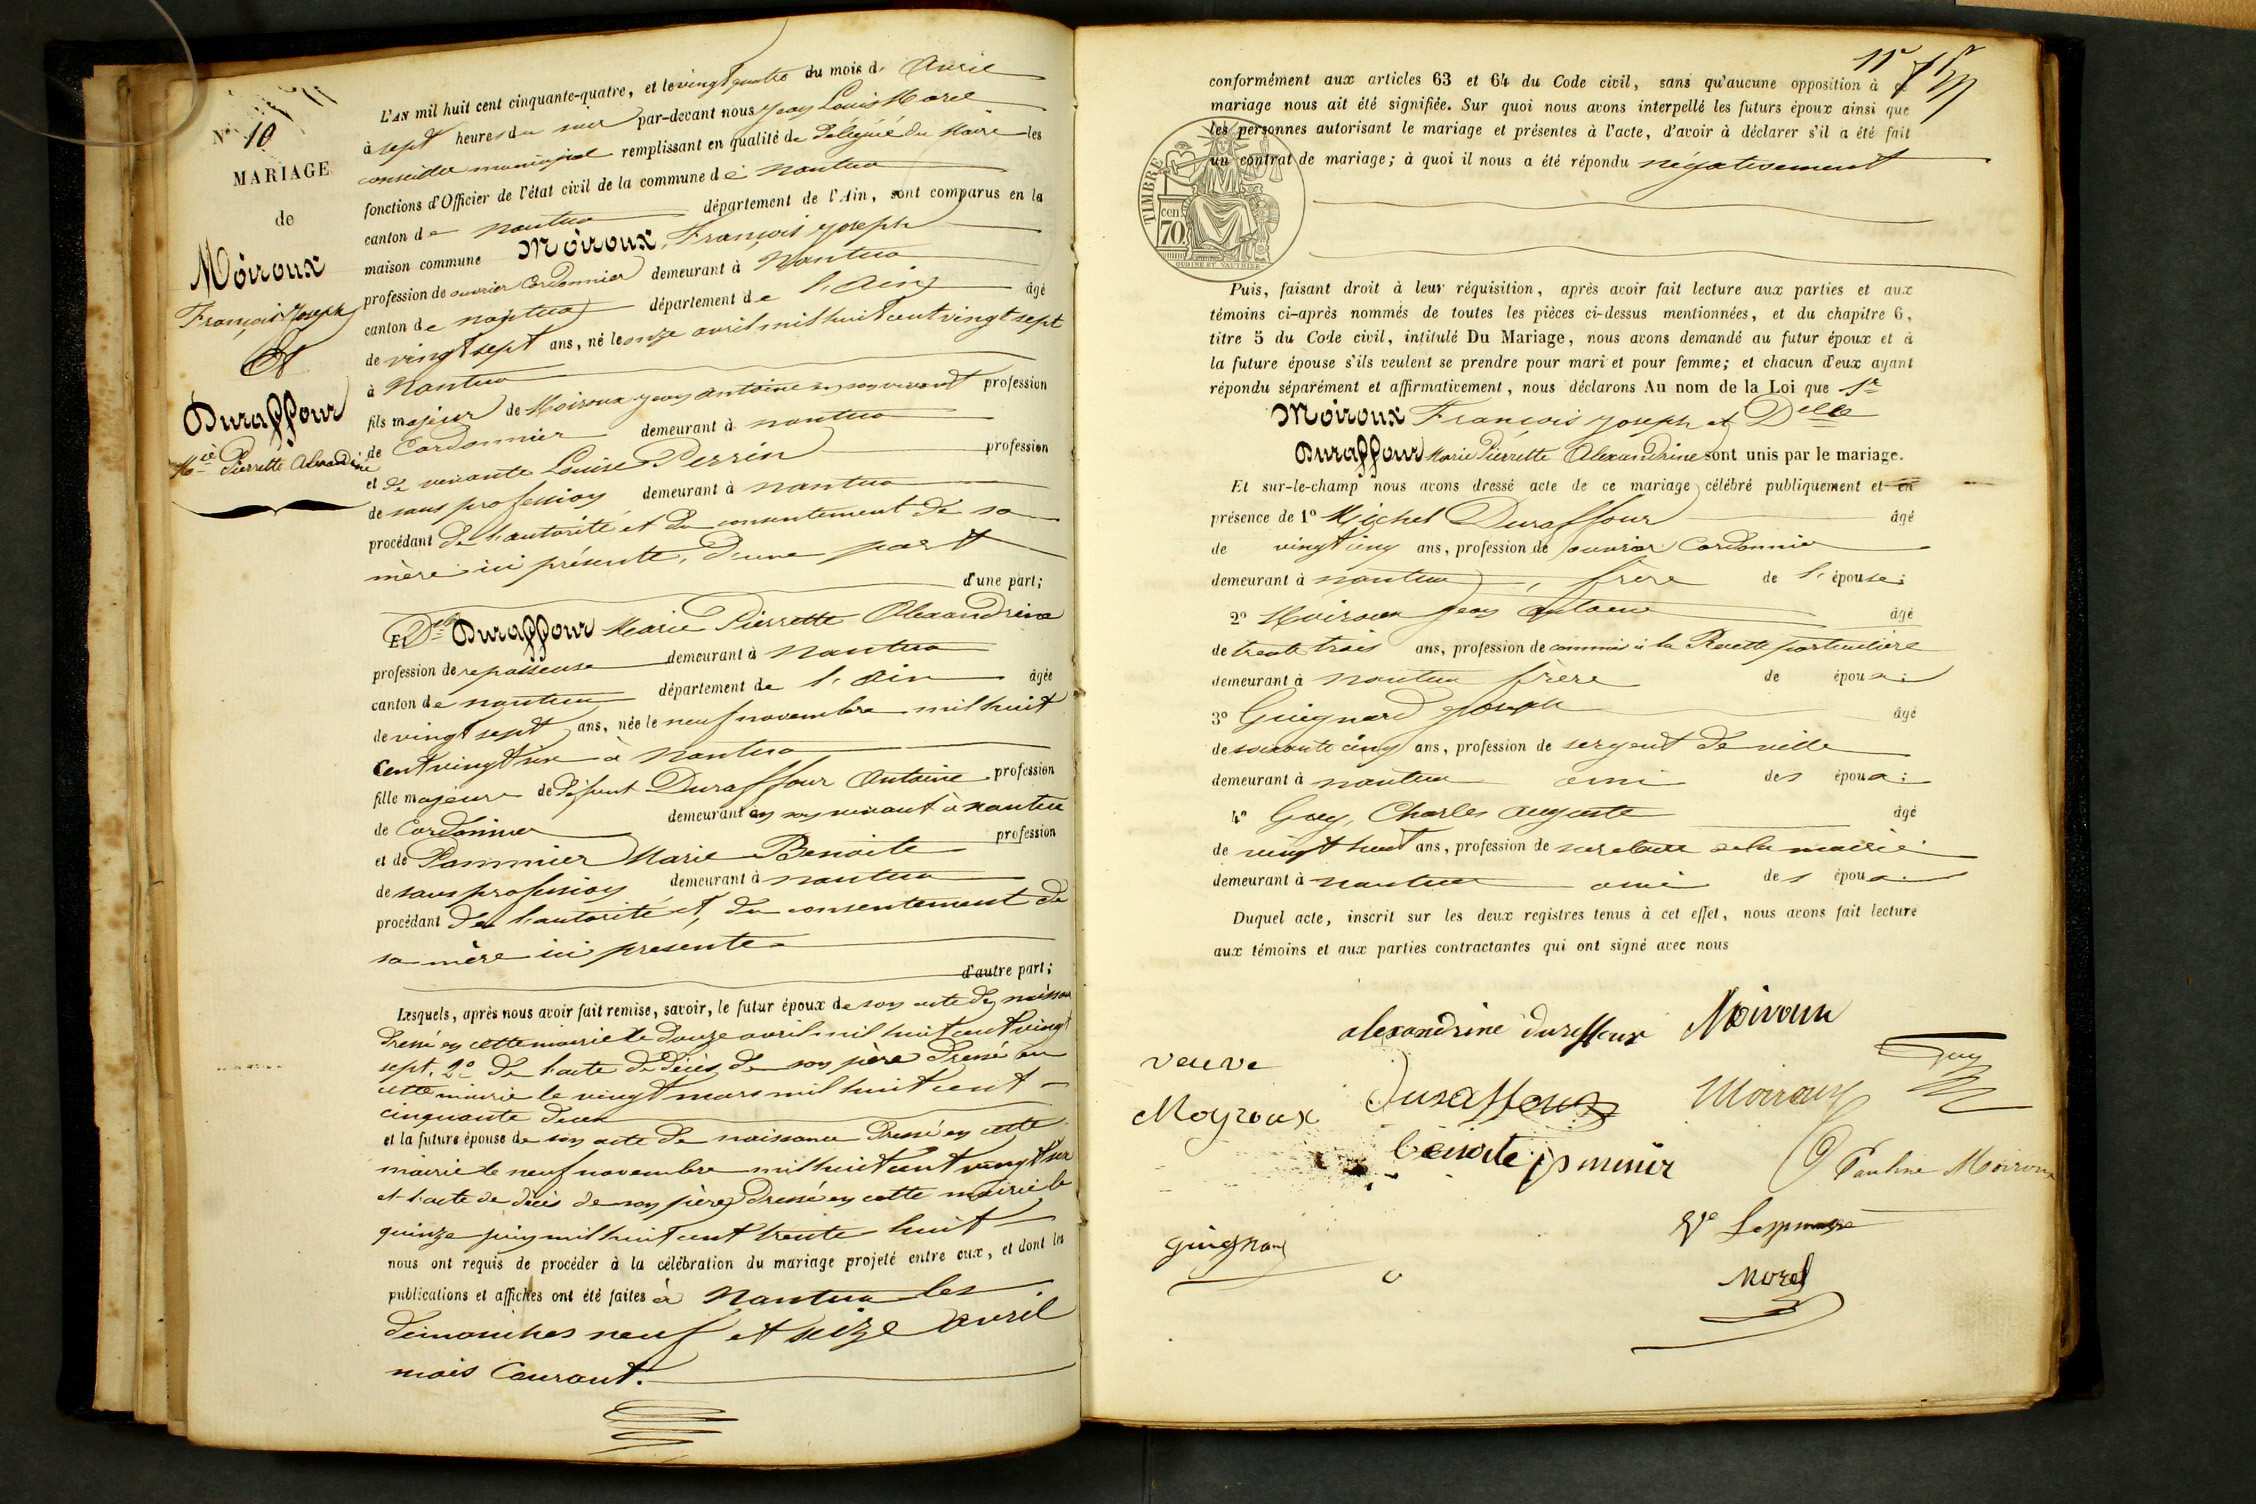 N° 10
MARIAGE
de
Moiroux
François Joseph
Et
Duraffour
Mie Pierrette Alexandrine
L'AN mil huit cent cinquante-quatre, et le vingt quatre du mois d' Avril
à sept heures du soir par-devant nous Jean Louis Morel
conseiller municipal remplissant en qualité de délégué du Maire les
fonctions d'Officier de l'état civil de la commune de Nantua
canton de Nantua département de l'Ain, sont comparus en la
maison commune Moiroux, François Joseph
profession de ouvrier Cordonnier demeurant à Nantua
canton de Nantua département de l'Ain âgé
de vingt sept ans, né le onze avril mil huit cent vingt sept
à Nantua
fils majeur de Moiroux Jean Antoine en son vivant profession
de Cordonnier demeurant à Nantua
et de vivante Louise Perrin profession
de sans profession demeurant à Nantua
procédant de l'autorité et du consentement de sa
mère ici présente, d'une part
d'une part;
Et Dlle Duraffour Marie Pierrette Alexandrine
profession de repasseuse demeurant à Nantua
canton de Nantua département de l'Ain âgée
de vingt sept ans, née le neuf novembre mil huit
Cent vingt six à Nantua
fille majeure de défunt Duraffour Antoine profession
de Cordonnier demeurant en son vivant à Nantua
et de Pommier Marie Benoite profession
de sans profession demeurant à Nantua
procédant de l'autorité et du consentement de
sa mère ici presente
d'autre part;
Lesquels, après nous avoir fait remise, savoir, le futur époux de son acte de naissance
dressé en cette mairie le douze avril mil huit cent vingt
sept, 2° de l'acte de décès de son père dressé en
cette mairie le vingt mars mil huit cent
cinquante deux
et la future épouse de son acte de naissance dressé en cette
mairie le neuf novembre mil huit cent vingt six
et l'acte de décès de son père dressé en cette mairie le
quinze juin mil huit cent trente huit
nous ont requis de procéder à la célébration du mariage projeté entre eux, et dont les
publications et affiches ont été faites à Nantua les
dimanches neuf et seize avril
mois Courant.
11e
conformément aux articles 63 et 64 du Code civil, sans qu'aucune opposition à ce
mariage nous ait été signifiée. Sur quoi nous avons interpellé les futurs époux ainsi que
les personnes autorisant le mariage et présentes à l'acte, d'avoir à déclarer s'il a été fait
un contrat de mariage; à quoi il nous a été répondu négativement
TIMBRE
cen
70
OUDINE ET VAUTHIER
Puis, faisant droit à leur réquisition, après avoir fait lecture aux parties et aux
témoins ci-après nommés de toutes les pièces ci-dessus mentionnées, et du chapitre 6,
titre 5 du Code civil, intitulé Du Mariage, nous avons demandé au futur époux et à
la future épouse s'ils veulent se prendre pour mari et pour femme; et chacun d'eux ayant
répondu séparément et affirmativement, nous déclarons Au nom de la Loi que Sr
Moiroux François Joseph et Delle
Duraffour Marie Pierrette Alexandrine sont unis par le mariage.
Et sur-le-champ nous avons dressé acte de ce mariage célébré publiquement et en
présence de 1° Michel Duraffour âgé
de vingt cinq ans, profession de ouvrier Cordonnier
demeurant à Nantua, frère de l'épouse;
2° Moiroux Jean Antoine âgé
de trente trois ans, profession de commis à la Recette particulière
demeurant à Nantua frère de époux;
3° Guignard Joseph âgé
de soixante cinq ans, profession de sergent de ville
demeurant à Nantua ami des époux;
4° Guy, Charles Auguste âgé
de vingt huit ans, profession de secretaire de la mairie
demeurant à Nantua ami des époux
Duquel acte, inscrit sur les deux registres tenus à cet effet, nous avons fait lecture
aux témoins et aux parties contractantes qui ont signé avec nous
alexandrine duraffour Moiroux
veuve
Moyroux Duraffour Moiroux Guy
benoite pomier Pauline Moiroux
guignard
Morel